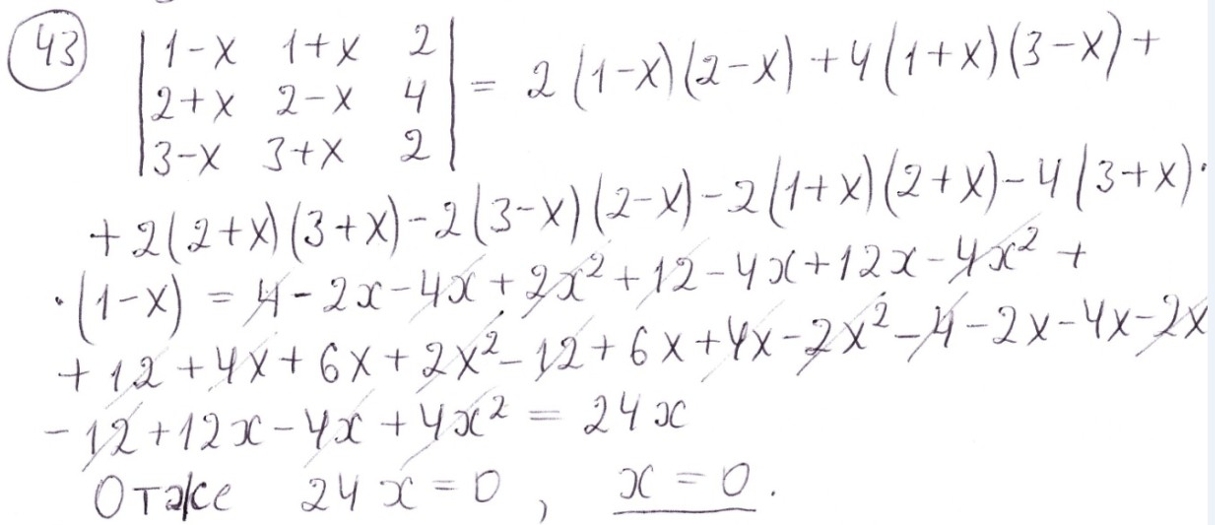 43 | 1-x 1+x 2 |
| 2+x 2-x 4 | = 2(1-x)(2-x)+4(1+x)(3-x)+
| 3-x 3+x 2 |
+2(2+x)(3+x)-2(3-x)(2-x)-2(1+x)(2+x)-4(3+x)·
·(1-x) = 4-2x-4x+2x²+12-4x+12x-4x²+
+12+4x+6x+2x²-12+6x+4x-2x²-4-2x-4x-2x
-12+12x-4x+4x² = 24x
Отже 24x=0, x=0.